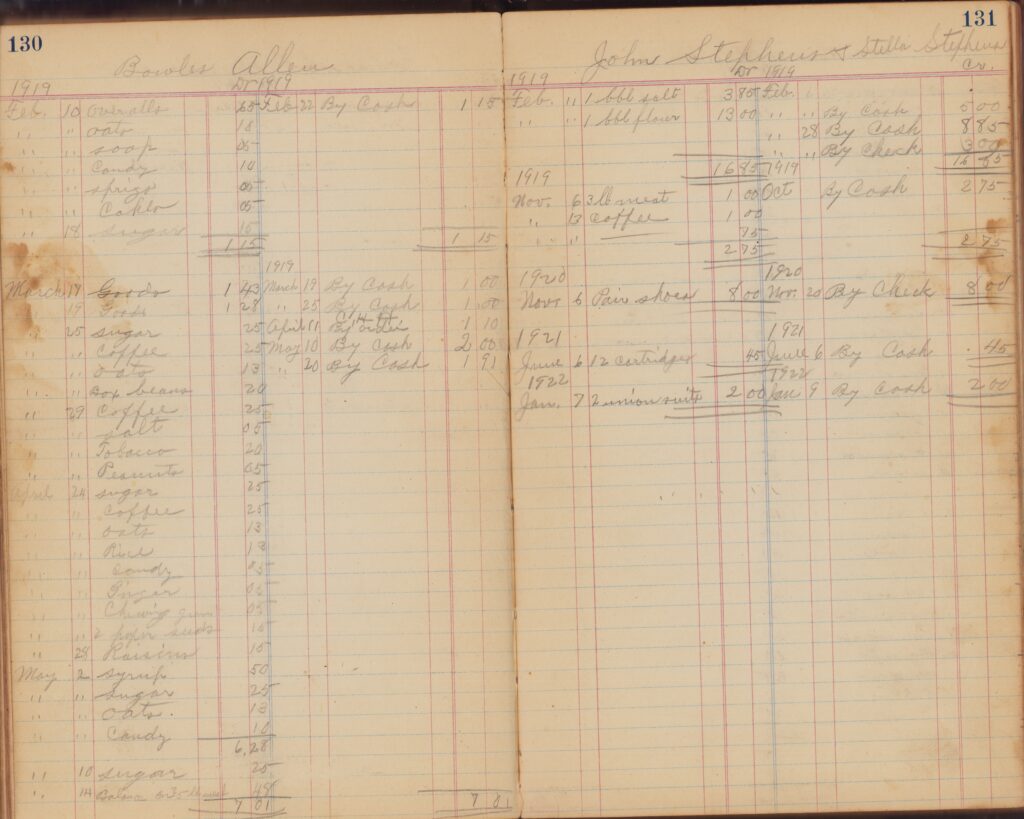 130
Bowles Allen
1919 Dr 1919
Feb. 10 Overalls 65 Feb 22 By Cash 1 15
" " oats 10
" " soap 05
" " Candy 10
" " sprigs 05
" " 05
" 18 sugar 15
1 15 1 15
1919
March 17 Goods 1 43 March 19 By Cash 1 00
" 19 Goods 1 28 " 25 By Cash 1 00
" 25 sugar 25 April 11 By order 1 10
" " Coffee 25 May 10 By Cash 2 00
" " oats 13 " 20 By Cash 1 91
" " box beans 20
" 29 Coffee 25
" " salt 05
" " Tobacco 20
" " Peanuts 05
April 24 sugar 25
" " Coffee 25
" " oats 13
" " Rice 18
" " Candy 05
" " Ginger 05
" " Chewing gum 05
" " 2 papr seeds 10
" 28 Raisins 15
May 2 syrup 50
" " sugar 25
" " oats 13
" " Candy 10
6.28
" 10 sugar 25
" 14 48
7 01 7 01
131
John Stephens & Stella Stephens
1919 Dr 1919 Cr.
Feb. " 1 bbl salt 3 85 Feb.
" " 1 bbl flour 13 00 " " By Cash 5 00
" 28 By Cash 8 85
" " By Check 3 00
16 85 1919 16 85
1919
Nov. 6 3 lb meat 1 00 Oct By Cash 2 75
" 13 Coffee 1 00
" " 75
2 75 2 75
1920 1920
Novr 6 Pair shoes 8 00 Nov. 20 By Check 8 00
1921 1921
June 6 12 Cartridges 45 June 6 By Cash 45
1922 1922
Jan. 7 2 union suits 2 00 Jan 9 By Cash 2 00